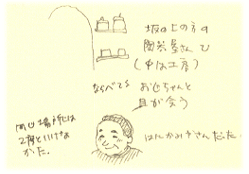 坂の上の方の
陶米屋さんで
(中は工房)
ならべてる おじちゃんと
目が会う
はんかみやさんだった。
同じ場所には
2度といけな
かった。